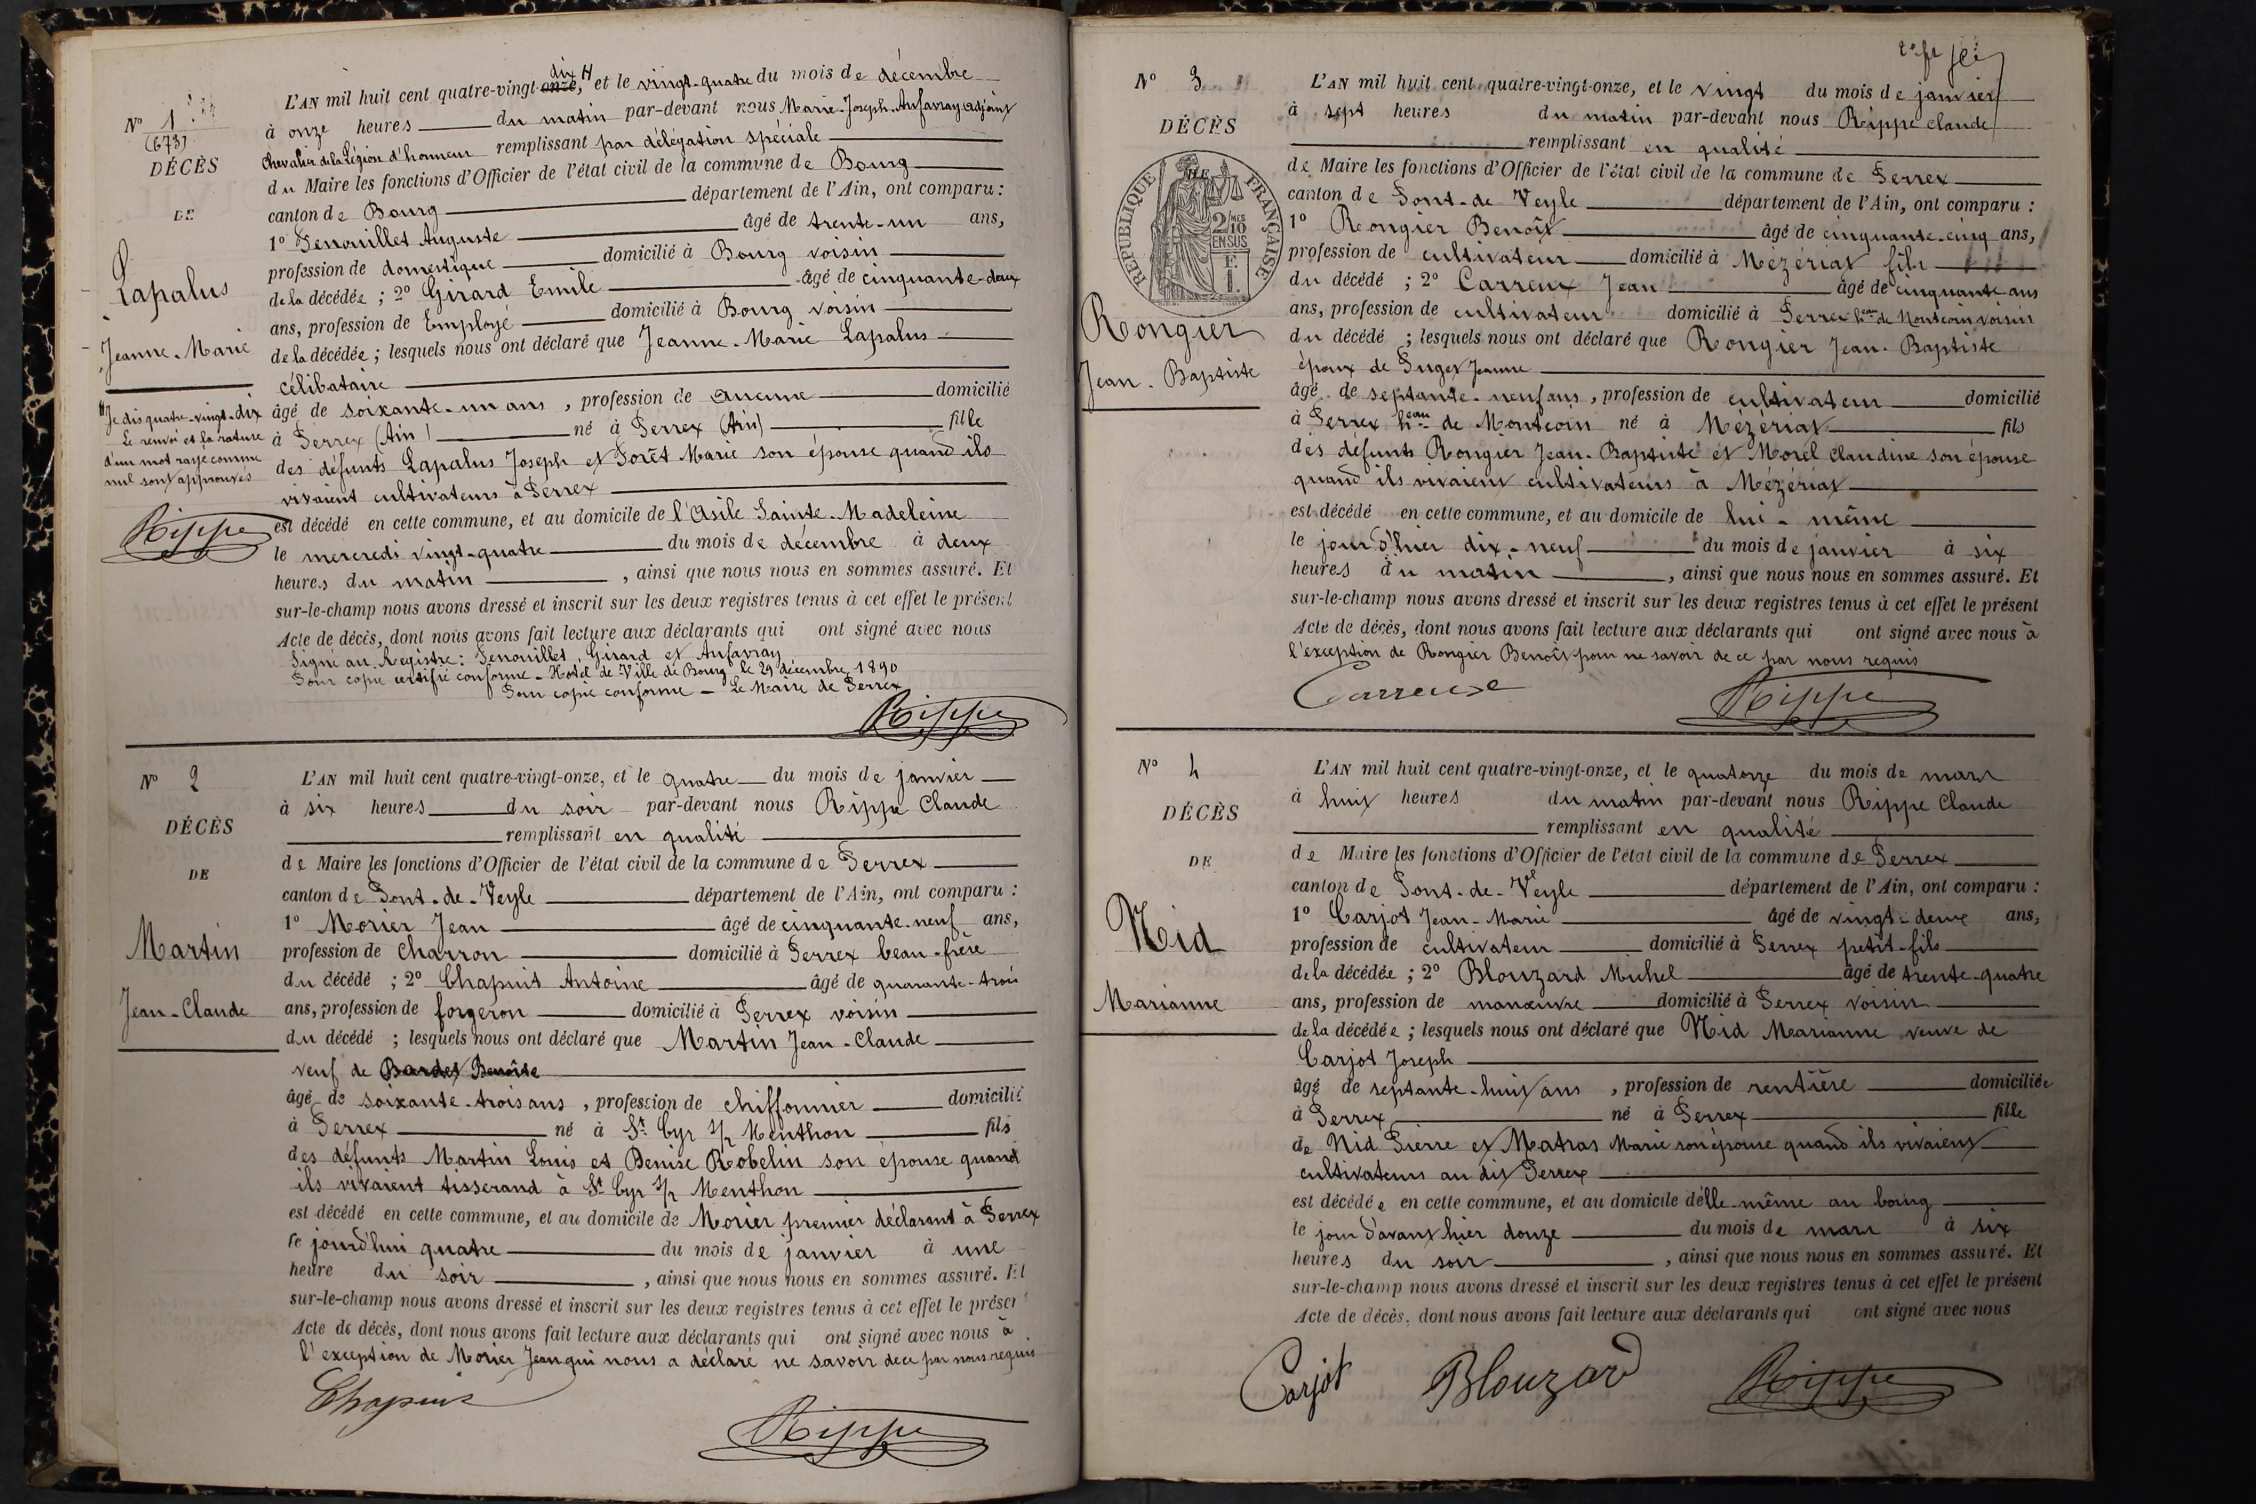 Nº 1
(673)
DÉCÈS
DE
Lapalus
Jeanne-Marie
Je dis quatre-vingt-dix
Le renvoi et la rature
d'un mot rayé comme
nul sont approuvés
Rippe
L'AN mil huit cent quatre-vingt-onze, dix et le vingt-quatre du mois de décembre
à onze heures du matin par-devant nous Marie-Joseph-Aufavray adjoint
Chevalier de la Légion d'honneur remplissant par délégation spéciale
du Maire les fonctions d'Officier de l'état civil de la commune de Bourg
canton de Bourg département de l'Ain, ont comparu :
1º Genouillet Auguste âgé de trente-un ans,
profession de domestique domicilié à Bourg voisin
de la décédée ; 2º Girard Emile âgé de cinquante-deux
ans, profession de Employé domicilié à Bourg voisin
de la décédée ; lesquels nous ont déclaré que Jeanne-Marie Lapalus
célibataire
âgé de soixante-un ans, profession de aucune domicilié
à Perrex (Ain) né à Perrex (Ain) fille
des défunts Lapalus Joseph et Forêt Marie son épouse quand ils
vivaient cultivateurs à Perrex
est décédé en cette commune, et au domicile de l'Asile Sainte-Madeleine
le mercredi vingt-quatre du mois de décembre à deux
heures du matin, ainsi que nous nous en sommes assuré. Et
sur-le-champ nous avons dressé et inscrit sur les deux registres tenus à cet effet le présent
Acte de décès, dont nous avons fait lecture aux déclarants qui ont signé avec nous
Signé au Registre : Genouillet, Girard et Aufavray
Pour copie certifié conforme - Hotel de Ville de Bourg le 29 décembre 1890
Pour copie conforme - Le Maire de Perrex
Rippe
Nº 2
DÉCÈS
DE
Martin
Jean-Claude
L'AN mil huit cent quatre-vingt-onze, et le quatre du mois de janvier
à six heures du soir par-devant nous Rippe Claude
remplissant en qualité
de Maire les fonctions d'Officier de l'état civil de la commune de Perrex
canton de Pont-de-Veyle département de l'Ain, ont comparu :
1º Morier Jean âgé de cinquante-neuf ans,
profession de Charron domicilié à Perrex beau-frère
du décédé ; 2º Chapuit Antoine âgé de quarante-trois
ans, profession de forgeron domicilié à Perrex voisin
du décédé ; lesquels nous ont déclaré que Martin Jean-Claude
veuf de Bardet Benoîte
âgé de soixante-trois ans, profession de chiffonnier domicilié
à Perrex né à St Cyr s/ Menthon fils
des défunts Martin Louis et Denise Robelin son épouse quand
ils vivaient tisserand à St Cyr s/ Menthon
est décédé en cette commune, et au domicile de Morier premier déclarant à Perrex
le jourd'hui quatre du mois de janvier à une
heure du soir, ainsi que nous nous en sommes assuré. Et
sur-le-champ nous avons dressé et inscrit sur les deux registres tenus à cet effet le présent
Acte de décès, dont nous avons fait lecture aux déclarants qui ont signé avec nous à
l'exception de Morier Jean qui nous a déclaré ne savoir de ce par nous requis
Chapuis
Rippe
Nº 3
DÉCÈS
RÉPUBLIQUE FRANÇAISE
2/10 MES
EN SUS
F.
1.
Rongier
Jean-Baptiste
L'AN mil huit cent quatre-vingt-onze, et le vingt du mois de janvier
à sept heures du matin par-devant nous Rippe Claude
remplissant en qualité
de Maire les fonctions d'Officier de l'état civil de la commune de Perrex
canton de Pont-de Veyle département de l'Ain, ont comparu :
1º Rongier Benoît âgé de cinquante-cinq ans,
profession de cultivateur domicilié à Mézériat fils
du décédé ; 2º Carreux Jean âgé de cinquante ans
ans, profession de cultivateur domicilié à Perrex heau de Montcoin voisin
du décédé ; lesquels nous ont déclaré que Rongier Jean-Baptiste
époux de Puget Jeanne
âgé de septante-neuf ans, profession de cultivateur domicilié
à Perrex heau de Montcoin né à Mézériat fils
des défunts Rongier Jean-Baptiste et Morel Claudine son épouse
quand ils vivaient cultivateurs à Mézériat
est décédé en cette commune, et au domicile de lui-même
le jour d'hier dix-neuf du mois de janvier à six
heures du matin, ainsi que nous nous en sommes assuré. Et
sur-le-champ nous avons dressé et inscrit sur les deux registres tenus à cet effet le présent
Acte de décès, dont nous avons fait lecture aux déclarants qui ont signé avec nous à
l'exception de Rongier Benoît pour ne savoir de ce par nous requis
Carreuse
Rippe
Nº 4
DÉCÈS
DE
Nid
Marianne
L'AN mil huit cent quatre-vingt-onze, et le quatorze du mois de mars
à huit heures du matin par-devant nous Rippe Claude
remplissant en qualité
de Maire les fonctions d'Officier de l'état civil de la commune de Perrex
canton de Pont-de-Veyle département de l'Ain, ont comparu :
1º Carjot Jean-Marie âgé de vingt-deux ans,
profession de cultivateur domicilié à Perrex petit-fils
de la décédée ; 2º Blouzard Michel âgé de trente-quatre
ans, profession de manœuvre domicilié à Perrex voisin
de la décédée ; lesquels nous ont déclaré que Nid Marianne veuve de
Carjot Joseph
âgé de septante-huit ans, profession de rentière domiciliée
à Perrex né à Perrex fille
de Nid Pierre et Matras Marie son épouse quand ils vivaient
cultivateurs au dit Perrex
est décédée en cette commune, et au domicile d'elle-même au bourg
le jour d'avant hier douze du mois de mars à six
heures du soir, ainsi que nous nous en sommes assuré. Et
sur-le-champ nous avons dressé et inscrit sur les deux registres tenus à cet effet le présent
Acte de décès, dont nous avons fait lecture aux déclarants qui ont signé avec nous
Carjot Blouzard Rippe